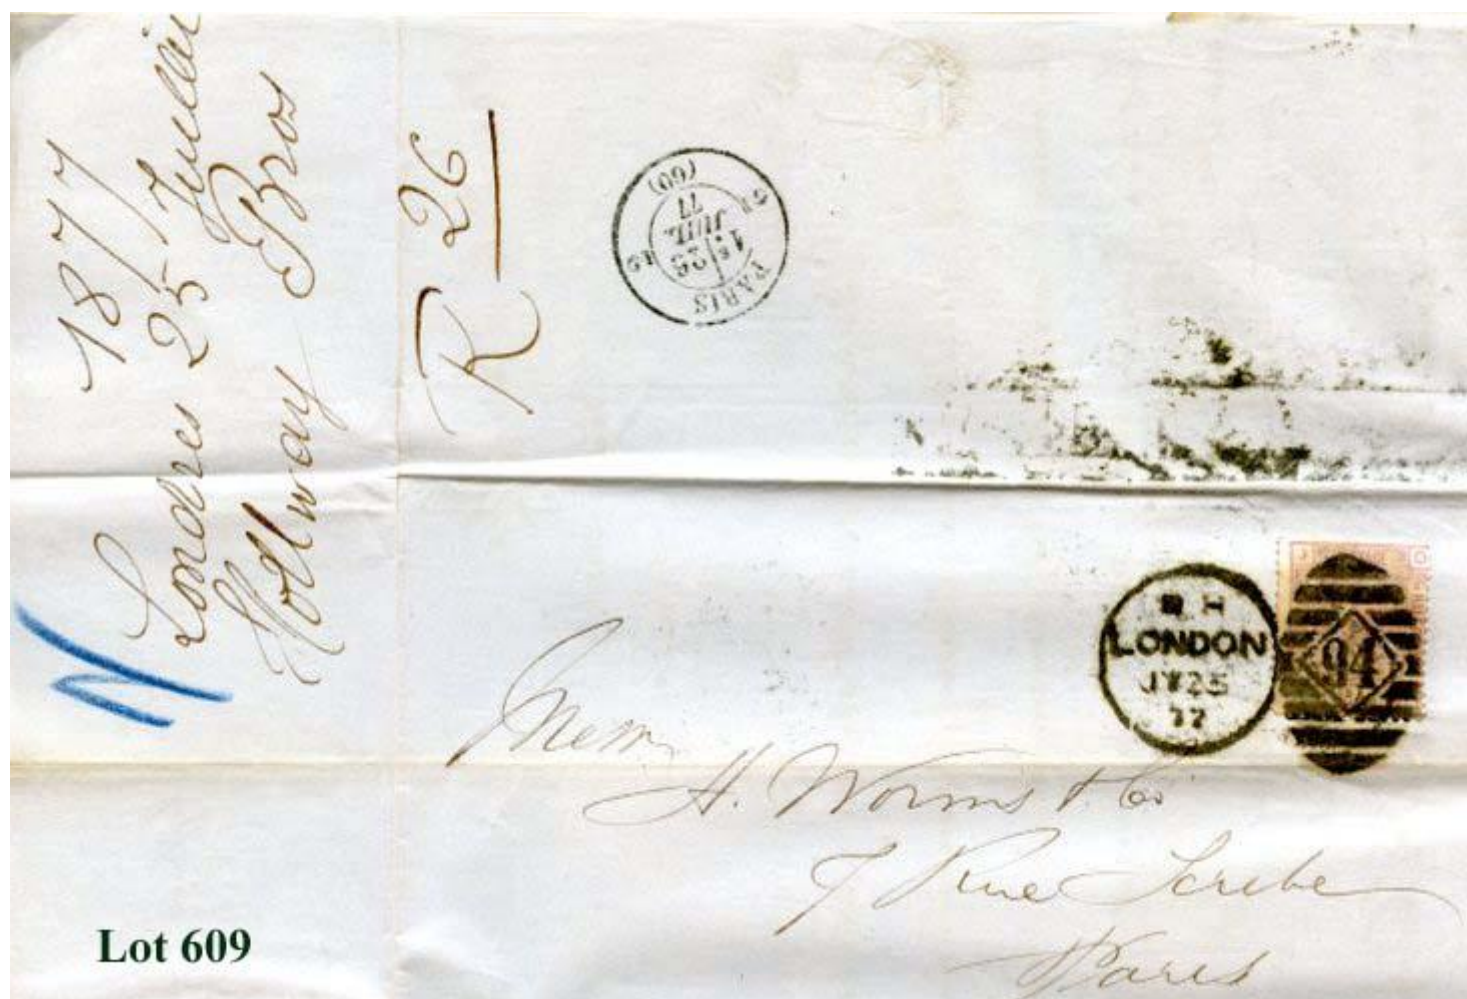 1877
Londres 25 Juillet
Hollway Bros
R 26
PARIS
15 26
JUIL.
77
(60)
LONDON
JY 25
77
94
Messrs
H. Worms & Co
7 Rue Scribe
Paris
Lot 609